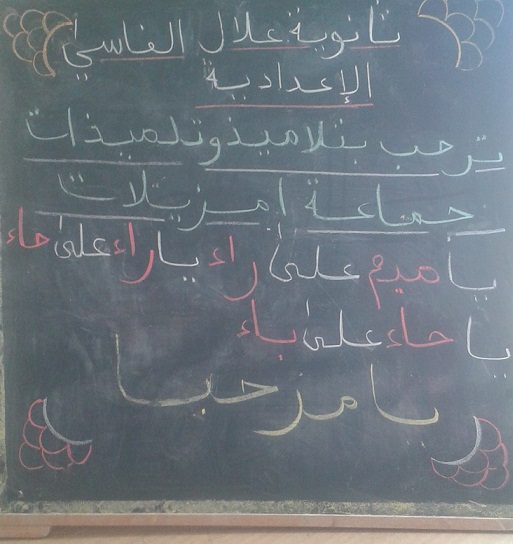 ثانوية علال الفاسي
الإعدادية
ترحب بتلاميذ وتلميذات
جماعة امزيلات
يا ميم على راء يا راء على حاء
يا حاء على باء
يا مرحبا